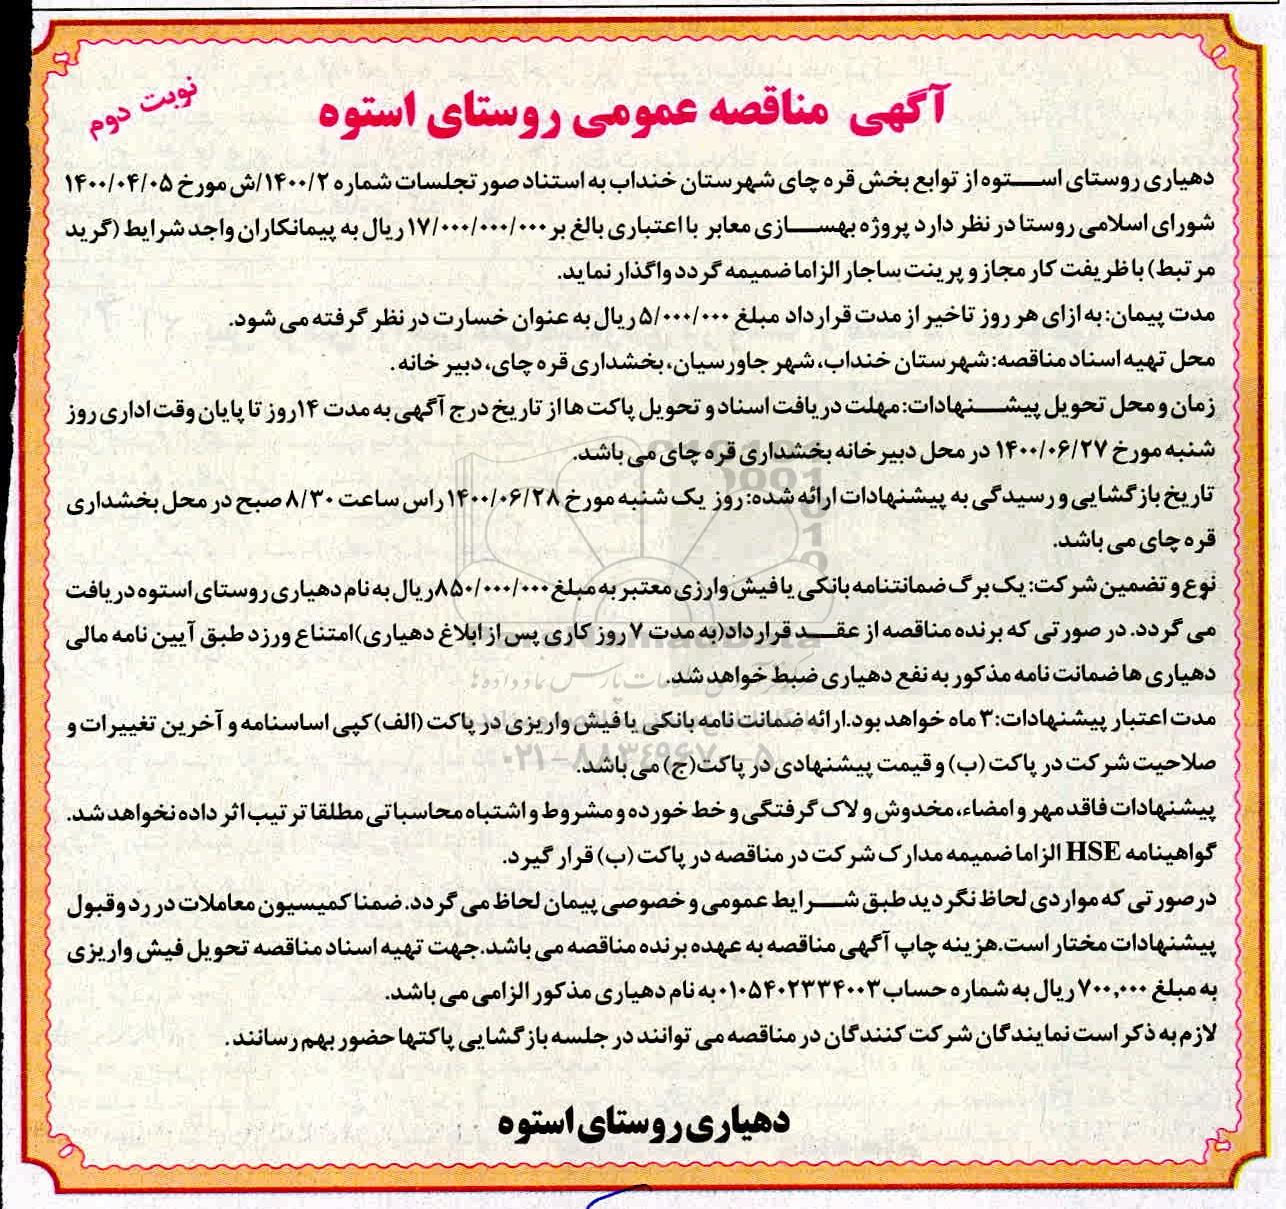 نوبت دوم
آگهی مناقصه عمومی روستای استوه
دهیاری روستای استوه از توابع بخش قره چای شهرستان خنداب به استناد صورتجلسات شماره ۱۴۰۰/۲/ش مورخ ۱۴۰۰/۰۴/۰۵
شورای اسلامی روستا در نظر دارد پروژه بهسازی معابر با اعتباری بالغ بر ۱۷/۰۰۰/۰۰۰/۰۰۰ ریال به پیمانکاران واجد شرایط (گرید
مرتبط) با ظریفت کار مجاز و پرینت ساجار الزاما ضمیمه گردد واگذار نماید.
مدت پیمان: به ازای هر روز تاخیر از مدت قرارداد مبلغ ۵/۰۰۰/۰۰۰ ریال به عنوان خسارت در نظر گرفته می شود.
محل تهیه اسناد مناقصه: شهرستان خنداب، شهر جاورسیان، بخشداری قره چای، دبیر خانه.
زمان و محل تحویل پیشنهادات: مهلت دریافت اسناد و تحویل پاکت ها از تاریخ درج آگهی به مدت ۱۴روز تا پایان وقت اداری روز
شنبه مورخ ۱۴۰۰/۰۶/۲۷ در محل دبیرخانه بخشداری قره چای می باشد.
تاریخ بازگشایی و رسیدگی به پیشنهادات ارائه شده: روز یک شنبه مورخ ۱۴۰۰/۰۶/۲۸ راس ساعت ۸/۳۰ صبح در محل بخشداری
قره چای می باشد.
نوع و تضمین شرکت: یک برگ ضمانتنامه بانکی یا فیش وارزی معتبر به مبلغ ۸۵۰/۰۰۰/۰۰۰ریال به نام دهیاری روستای استوه دریافت
می گردد. در صورتی که برنده مناقصه از عقد قرارداد(به مدت ۷ روز کاری پس از ابلاغ دهیاری)امتناع ورزد طبق آیین نامه مالی
دهیاری ها ضمانت نامه مذکور به نفع دهیاری ضبط خواهد شد.
مدت اعتبار پیشنهادات:۳ ماه خواهد بود.ارائه ضمانت نامه بانکی یا فیش واریزی در پاکت (الف)کپی اساسنامه و آخرین تغییرات و
صلاحیت شرکت در پاکت (ب) و قیمت پیشنهادی در پاکت(ج) می باشد.
۰۲۱-۸۸۳۴۹۶۷۰-۵
پیشنهادات فاقد مهر و امضاء، مخدوش و لاک گرفتگی و خط خورده و مشروط و اشتباه محاسباتی مطلقا ترتیب اثر داده نخواهد شد.
گواهینامه HSE الزاما ضمیمه مدارک شرکت در مناقصه در پاکت (ب) قرار گیرد.
درصورتی که مواردی لحاظ نگردید طبق شرایط عمومی و خصوصی پیمان لحاظ می گردد. ضمنا کمیسیون معاملات در رد و قبول
پیشنهادات مختار است.هزینه چاپ آگهی مناقصه به عهده برنده مناقصه می باشد.جهت تهیه اسناد مناقصه تحویل فیش واریزی
به مبلغ ۷۰۰,۰۰۰ ریال به شماره حساب ۰۱۰۵۴۰۲۳۳۴۰۰۳ به نام دهیاری مذکور الزامی می باشد.
لازم به ذکر است نمایندگان شرکت کنندگان در مناقصه می توانند در جلسه بازگشایی پاکتها حضور بهم رسانند.
دهیاری روستای استوه